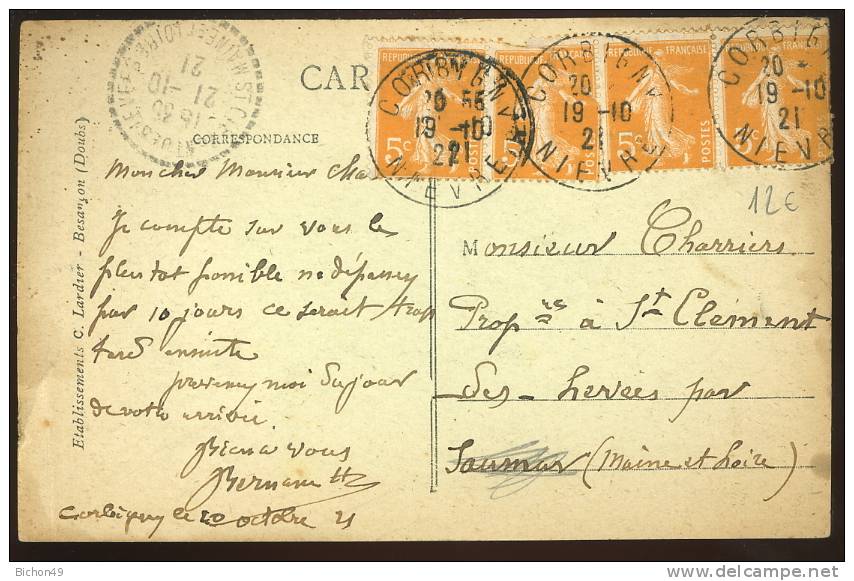 CAR
CORRESPONDANCE
REPUBLIQUE FRANÇAISE
POSTES
5c
CORBIGNY
20
19 -10
21
NIEVRE
12€
Mon cher Monsieur Cha
Je compte sur vous le
plus tot possible ne dépassez
pas 10 jours ce serait trop
tard ensuite
prevenez moi du jour
de votre arrivée
Bien a vous
Corbigny le 20 octobre 21
Monsieur Charriers
Prop re à St Clément
des-Levées par
Saumur (Maine et Loire)
Etablissements C. Lardier - Besançon (Doubs)
Bichon49
http://www.delcampe.net